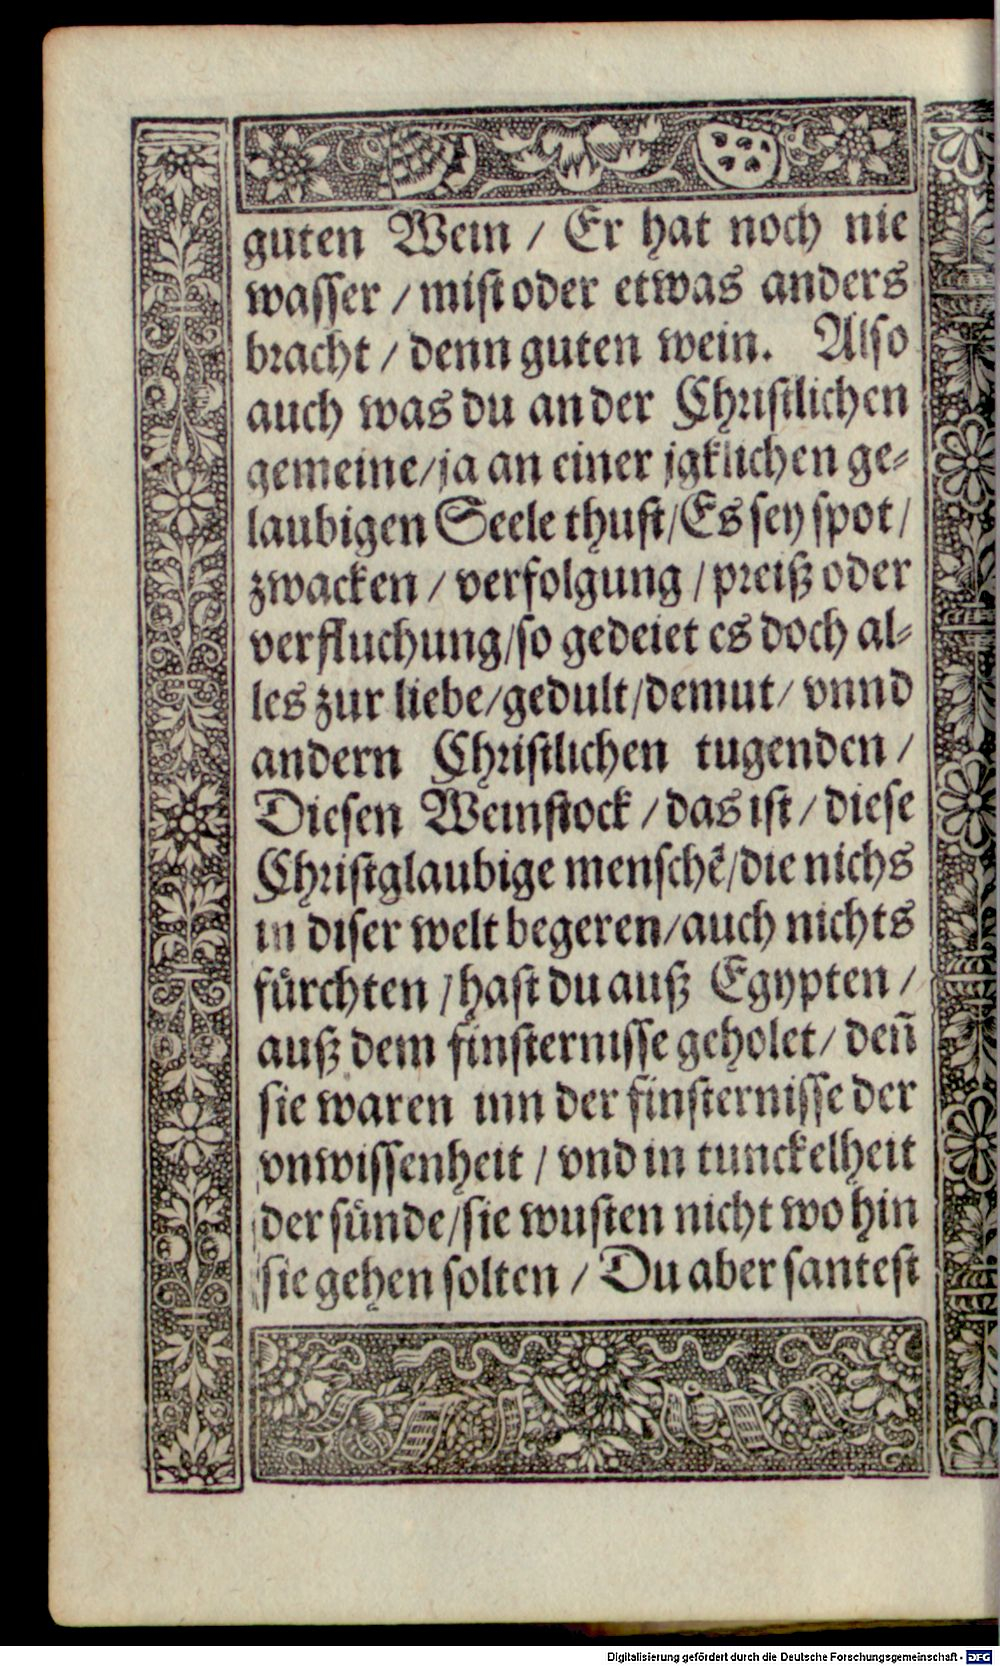 guten Wein / Er hat noch nie
wasser / mist oder etwas anders
bracht / denn guten wein. Also
auch was du an der Christlichen
gemeine / ja an einer jgklichen ge⸗
laubigen Seele thust / Es sey spot /
zwacken / verfolgung / preiß oder
verfluchung / so gedeiet es doch al⸗
les zur liebe / gedult / demut / vnnd
andern Christlichen tugenden /
Diesen Weinstock / das ist / diese
Christglaubige menschẽ / die nichs
in diser welt begeren / auch nichts
fürchten / hast du auß Egypten /
auß dem finsternisse geholet / den̄
sie waren inn der finsternisse der
vnwissenheit / vnd in tunckelheit
der sünde / sie wusten nicht wo hin
sie gehen solten / Du aber santest
Digitalisierung gefördert durch die Deutsche Forschungsgemeinschaft - DFG